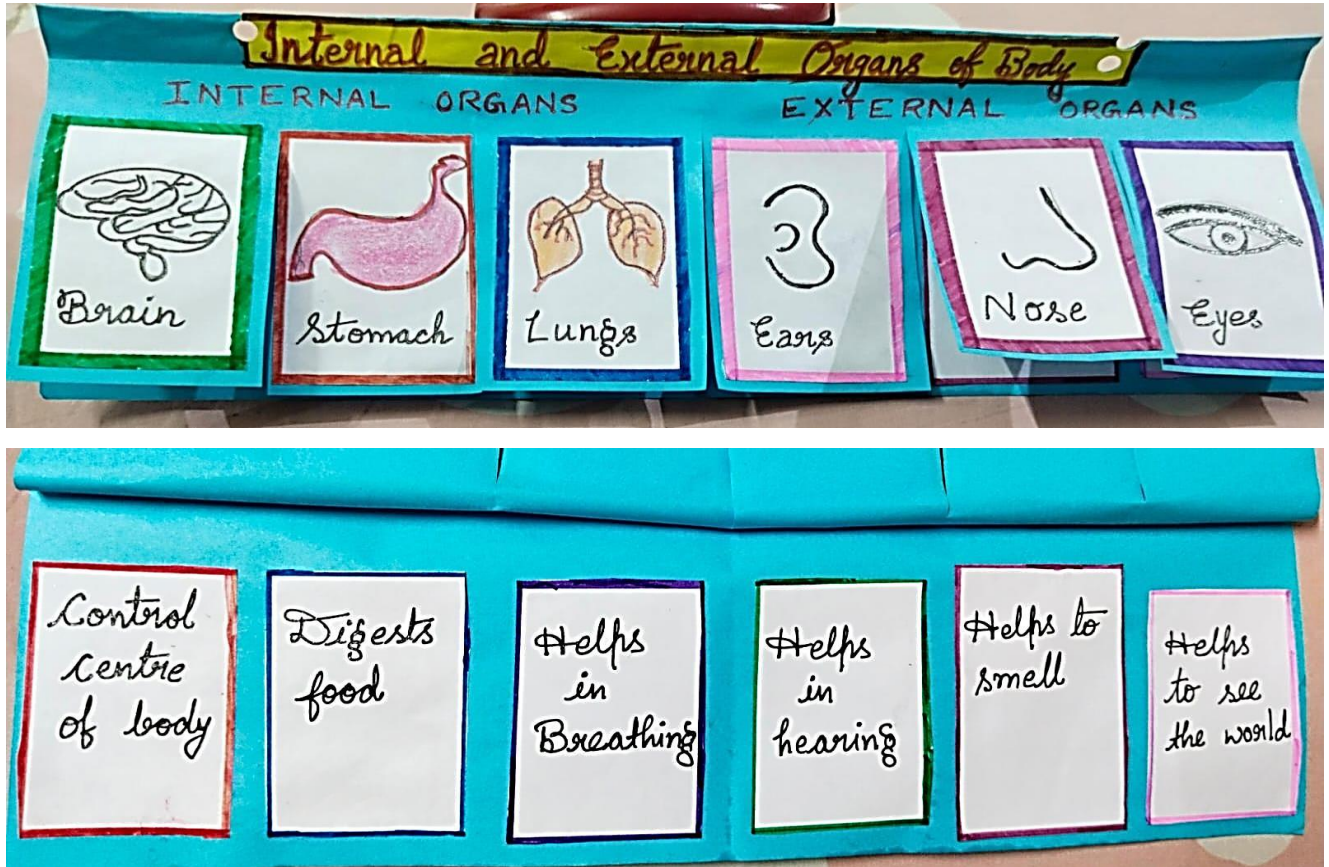 Internal and External Organs of Body
INTERNAL ORGANS
EXTERNAL ORGANS
Brain
Stomach
Lungs
Ears
Nose
Eyes
Control
Centre
of body
Digests
food
Helps
in
Breathing
Helps
in
hearing
Helps to
smell
Helps
to see
the world